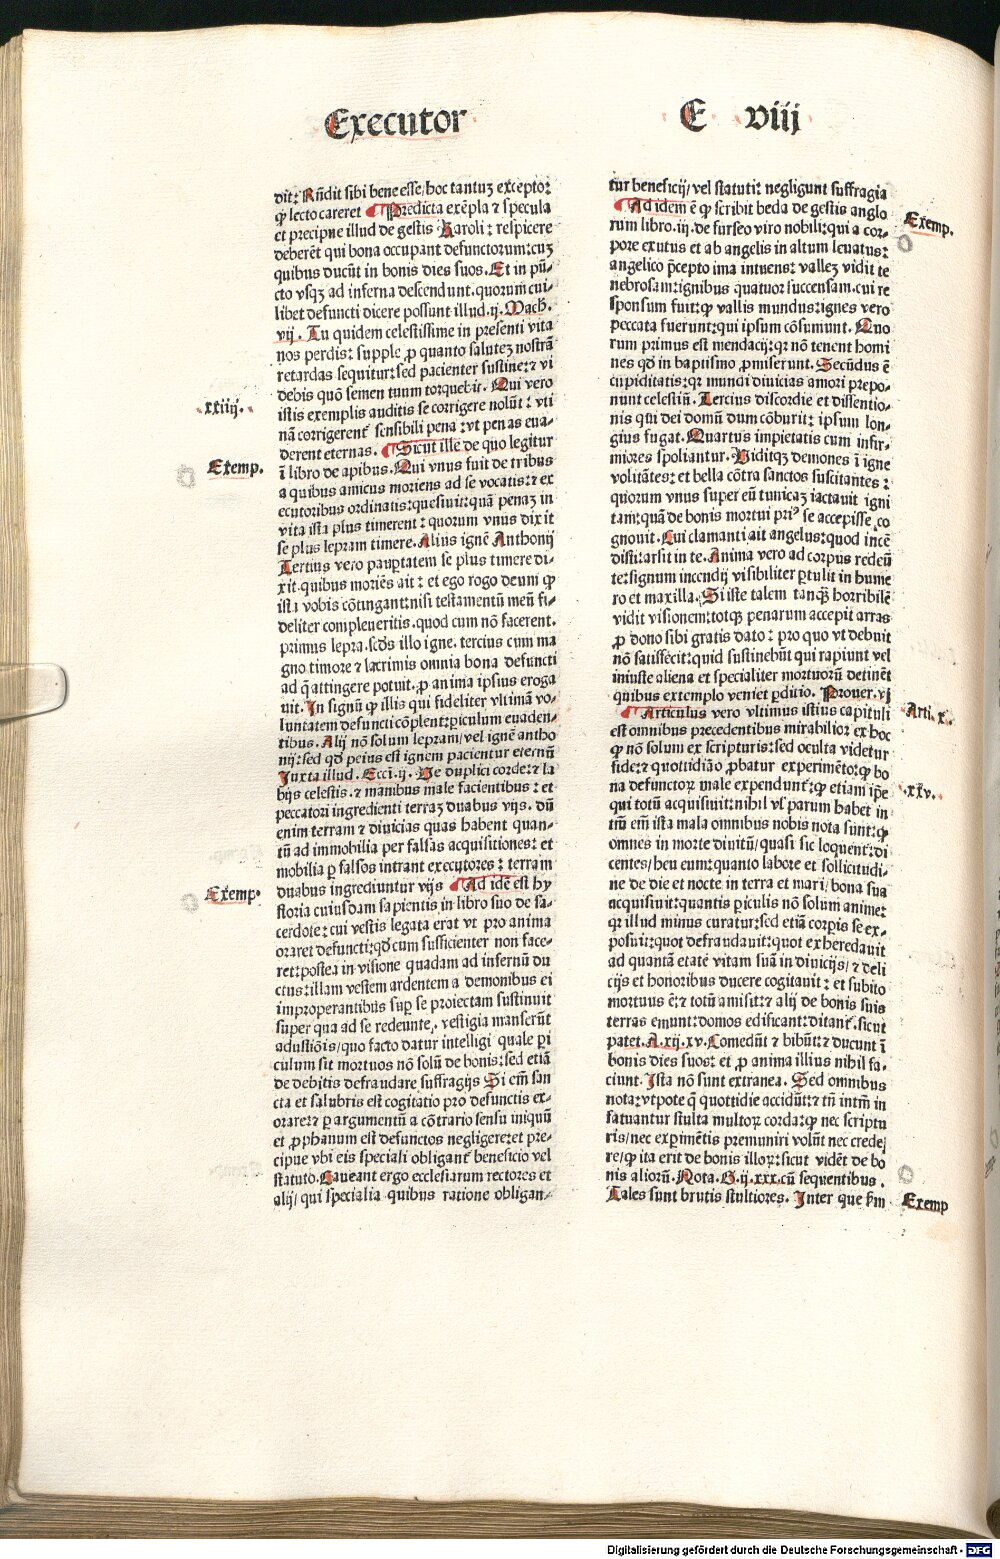 Executor
E viij
dit: Rñdit sibi bene esse/ hoc tantuʒ excepto:
ꝙ lecto careret Predicta exẽpla ⁊ specula
et precipue illud de gestis Karoli: respicere
deberẽt qui bona occupant defunctorum: cuʒ
quibus ducũt in bonis dies suos. Et in pũ⸗
cto vsqʒ ad inferna descendunt. quorum cui⸗
libet defuncti dicere possunt illud .ij. Mach.
vij. Tu quidem celestissime in presenti vita
nos perdis: supple ꝓ quanto saluteʒ nostrã
retardas sequitur: sed pacienter sustine: ⁊ vi
debis quõ semen tuum torquebit. Qui vero
.xxiiij.
istis exemplis auditis se corrigere nolũt: vti
nã corrigerenť sensibili pena: vt penas eua⸗
derent eternas. Sicut ille de quo legitur
Exemp.
ĩ libro de apibus. Qui vnus fuit de tribus
a quibus amicus moriens ad se vocatis: ⁊ ex
ecutoribus ordinatis: quesiuit: quã penaʒ in
vita ista plus timerent: quorum vnus dixit
se plus lepram timere. Alius ignẽ Anthonij
Tertius vero paupertatem se plus timere di⸗
xit. quibus moriẽs ait: et ego rogo deum ꝙ
ista vobis cõtingant: nisi testamentũ meũ fi⸗
deliter compleueritis. quod cum nõ facerent.
primus lepra. scd̃s illo igne. tercius cum ma
gno timore ⁊ lacrimis omnia bona defuncti
ad q̃ attingere potuit. ꝓ anima ipsius eroga
uit. In signũ ꝙ illis qui fideliter vltimã vo⸗
luntatem defuncti cõplent: piculum euaden⸗
tibus. Alij nõ solum lepram/ vel ignẽ antho
nij: sed qd̓ peius est ignem pacientur eternũ
Juxta illud. Ecci̾. ij. Ve duplici corde: ⁊ la
bijs celestis. ⁊ manibus male facientibus: et
peccatori ingredienti terraʒ duabus vijs. dũ
enim terram ⁊ diuicias quas habent quan⸗
tũ ad immobilia per falsas acquisitiones: et
mobilia ꝑ falsos intrant executores: terram
duabus ingrediuntur vijs Ad idẽ est hy
Exemp.
storia cuiusdam sapientis in libro suo de sa⸗
cerdote: cui vestis legata erat vt pro anima
oraret defuncti: qd̓ cum sufficienter non face⸗
ret: postea in visione quadam ad infernũ du
ctus: illam vestem ardentem a demonibus ei
improperantibus suꝑ se proiectam sustinuit
super qua ad se redeunte, vestigia manserũt
adustiõis/ quo facto datur intelligi quale ꝑi
culum sit mortuos nõ solũ de bonis: sed etiã
de debitis defraudare suffragijs Si em̃ san
cta et salubris est cogitatio pro defunctis ex⸗
orare: ⁊ ꝑ argumentũ a cõtrario sensu iniquũ
et ꝓphanum est defunctos negligere: et pre⸗
cipue vbi eis speciali obliganť beneficio vel
statuto. Caueant ergo ecclesiarum rectores et
alij/ qui specialia quibus ratione obligan⸗
tur beneficij/ vel statuti: negligunt suffragia
Ad idem ẽ ꝙ scribit beda de gestis anglo
Exemp.
rum libro .iij. de furseo viro nobili: qui a cor⸗
pore exutus et ab angelis in altum leuatus:
angelico p̃cepto ima intuens: valleʒ vidit te
nebrosam: ignibus quatuor succensam. cui re
sponsum fuit: ꝙ vallis mundus: ignes vero
peccata fuerunt: qui ipsum cõsumunt. Quo
rum primus est mendacij: qꝛ nõ tenent homi
nes qd̓ in baptismo ꝓmiserunt. Secũdus ẽ
cupiditatis: qꝛ mundi diuicias amori prepo⸗
nunt celestiũ. Tercius discordie et dissentio⸗
nis qui dei domũ dum cõburit: ipsum lon⸗
gius fugat. Quartus impietatis cum infir⸗
miores spoliantur. Viditqʒ demones ĩ igne
volitãtes: et bella cõtra sanctos suscitantes:
quorum vnus super eũ tunicaʒ iactauit igni
tam: quã de bonis mortui priꝰ se accepisse co
gnouit. Cui clamanti ait angelus: quod incẽ
disti: arsit in te. Anima vero ad corpus redeũ
te: signum incendij visibiliter ꝑtulit in hume
ro et maxilla. Si iste talem tanqʒ̃ horribilẽ
vidit visionem: totqʒ penarum accepit arras
ꝓ dono sibi gratis dato: pro quo vt debuit
nõ satisfecit: quid sustinebũt qui rapiunt vel
iniuste aliena et specialiter mortuorũ detinẽt
quibus extemplo veniet ꝑditio. Prouer. vj
Articulus vero vltimus istius capituli
Arti. x.
est omnibus precedentibus mirabilior ex hoc
ꝙ nõ solum ex scripturis: sed oculta videtur
fide: ⁊ quottidião ꝓbatur experimẽto: ꝙ bo
na defunctoꝝ male expendunť: ꝙ etiam ip̃e
.xxv.
qui totũ acquisiuit: nihil vľ parum habet in⸗
tm̃ em̃ ista mala omnibus nobis nota sunt: ꝙ
omnes in morte diuitũ/ quasi sic loquenť: di
centes/ heu eum: quanto labore et sollicitudi⸗
ne de die et nocte in terra et mari/ bona sua
acquisiuit: quantis ꝑiculis nõ solum anime:
qꝛ illud minus curatur: sed etiã corꝑis se ex⸗
posuit: quot defraudauit: quot exheredauit
ad quantã etatẽ vitam suã in diuicijs/ ⁊ deli
cijs et honoribus ducere cogitauit: et subito
mortuus ẽ: ⁊ totũ amisit: ⁊ alij de bonis suis
terras emunt: domos edificant: ditanť. sicut
patet. A. xij. xv. Comedũt ⁊ bibũt: ⁊ ducunt ĩ
bonis dies suos: et ꝓ anima illius nihil fa⸗
ciunt. Ista nõ sunt extranea. Sed omnibus
nota: vtpote q̃ quottidie accidũt: ⁊ tñ intm̃ in
fatuantur stulta multoꝝ corda: ꝙ nec scriptu
ris/ nec exꝑimẽtis premuniri volũt nec crede⸗
re/ ꝙ ita erit de bonis illoꝝ: sicut vidẽt de bo
nis aliorũ. Nota. G. ij. xxx. cũ sequentibus.
Tales sunt brutis stultiores. Inter que ẜm
Exemp
Digitalisierung gefördert durch die Deutsche Forschungsgemeinschaft - DFG